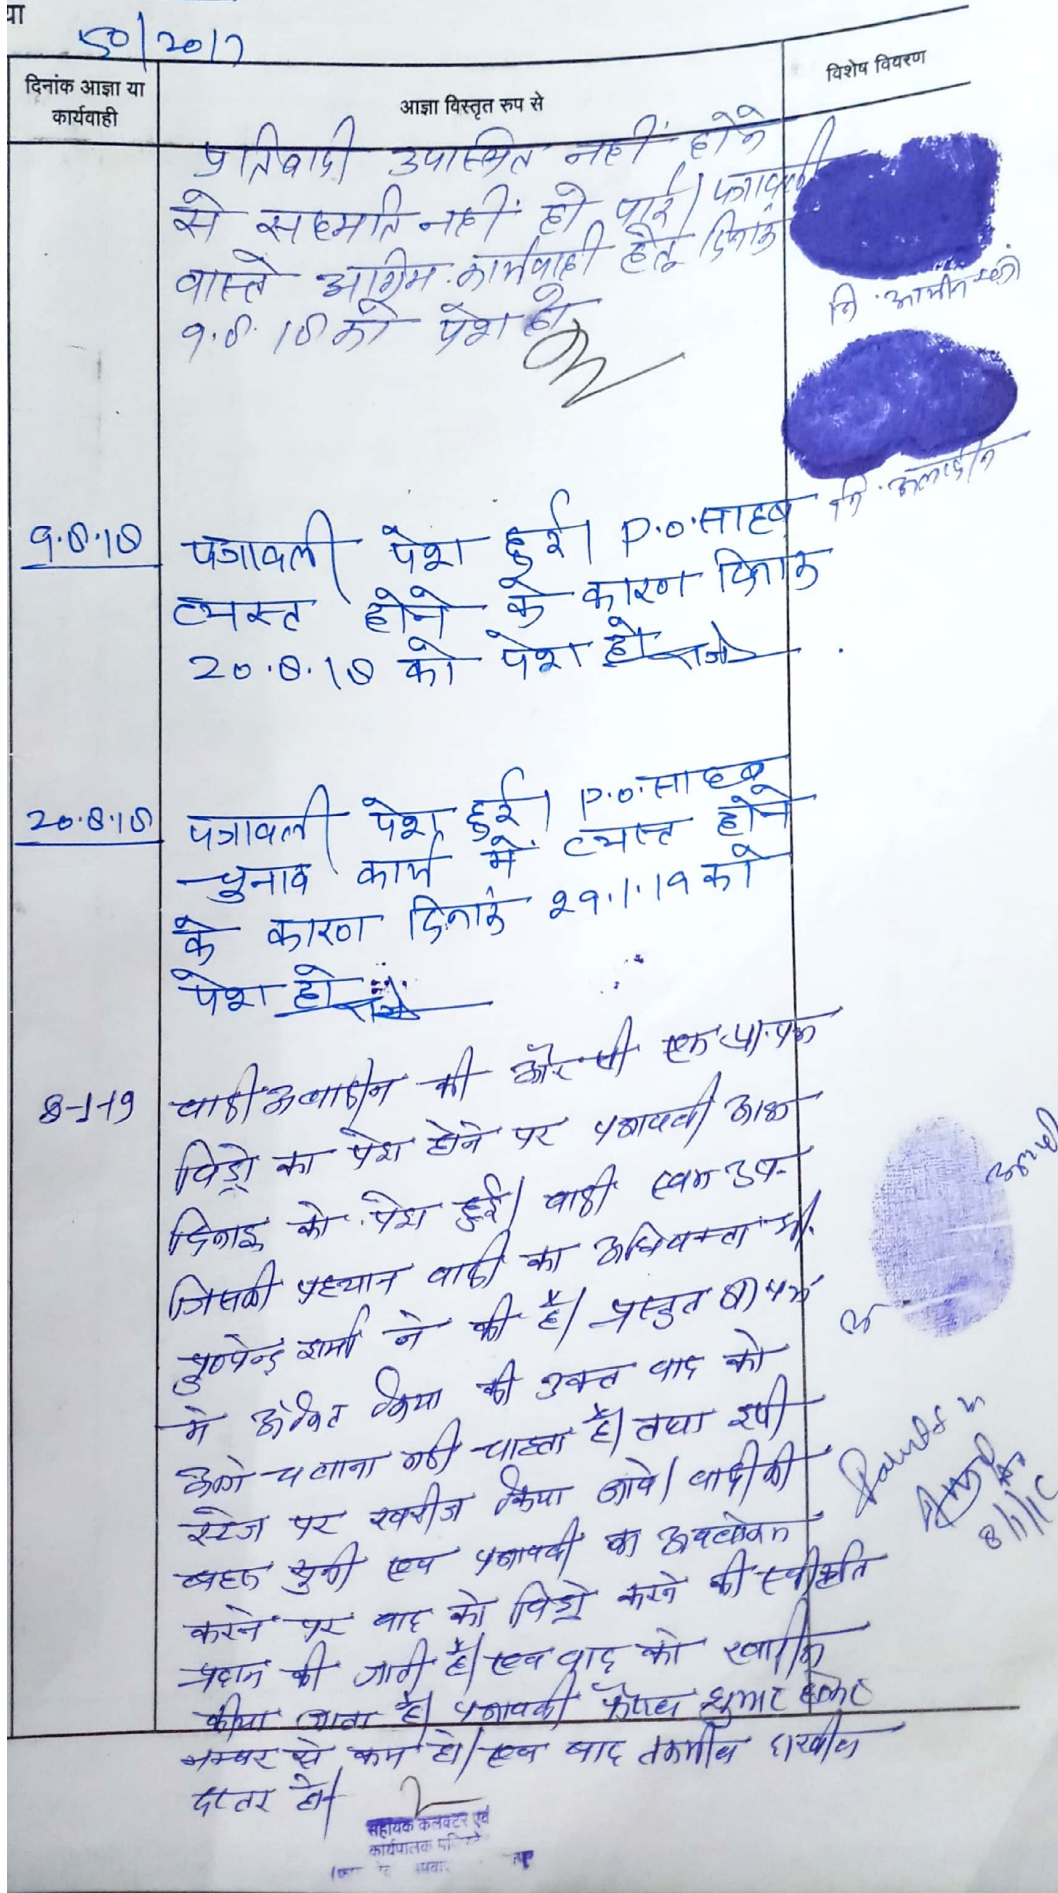 या
50/2017
दिनांक आज्ञा या
कार्यवाही
आज्ञा विस्तृत रुप से
विशेष विवरण
प्रतिवादी उपस्थित नहीं होने
से सहमति नहीं हो पाई। पत्रावली
वास्ते अग्रिम कार्यवाही हेतु दिनांक
9.8.18 को पेश हो
नि.
नि. अलादीन
9.8.18
पत्रावली पेश हुई। P.O. साहब
व्यस्त होने के कारण दिनांक
20.8.18 को पेश हो
20.8.18
पत्रावली पेश हुई। P.O. साहब
चुनाव कार्य में व्यस्त होने
के कारण दिनांक 29.1.19 को
पेश हो
8-1-19
वादी अलादीन की और से एक प्रा. पत्र
विड्रो का पेश होने पर पत्रावली आज
दिनांक को पेश हुई। वादी स्वयं उप.
जिसकी पहचान वादी का अधिवक्ता श्री
शर्मा ने की है। प्रस्तुत प्रा पत्र
मे अंकित किया की उक्त वाद को
आगे चलाना नही चाहता है। तथा इसी
स्टेज पर खारीज किया जावे। वादी की
बहस सुनी एवं पत्रावली का अवलोकन
करने पर वाद को विड्रो करने की स्वीकृति
प्रदान की जाती है। एवं वाद को खारीज
कीया जाता है। पत्रावली फैसल शुमार होकर
नम्बर से कम हो। एवं बाद तकमील दाखील
दफ्तर हो।
8/1/19
सहायक कलक्टर एवं
कार्यपालक